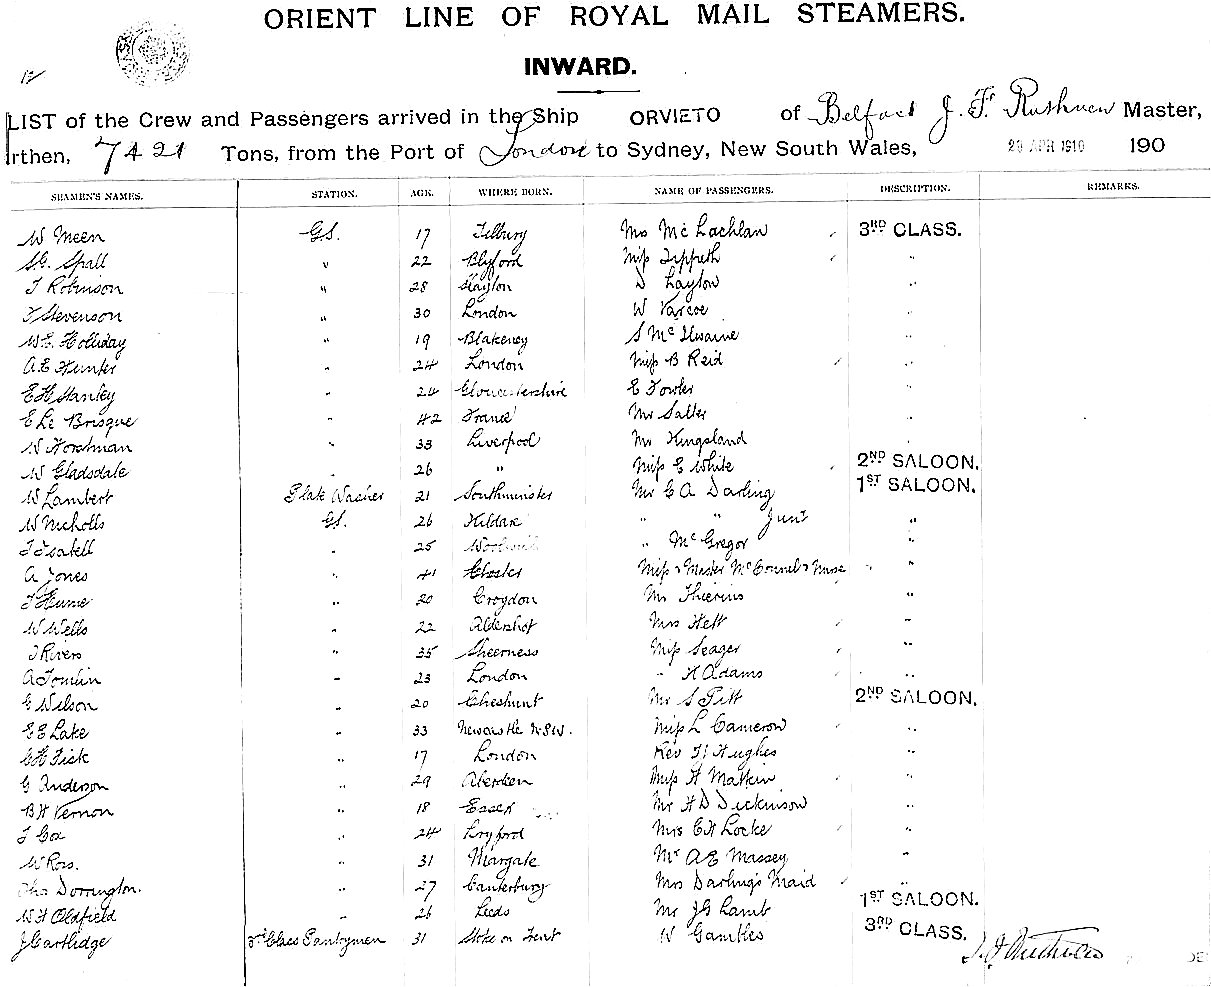 ORIENT LINE OF ROYAL MAIL STEAMERS.
INWARD.
LIST of the Crew and Passengers arrived in the Ship ORVIETO of Belfast J. F. Ruthven Master,
urthen, 7421 Tons, from the Port of London to Sydney, New South Wales, 29 APR 1910 190
SEAMEN'S NAMES. STATION. AGE. WHERE BORN. NAME OF PASSENGERS. DESCRIPTION. REMARKS.
W Meen G.S. 17 Tilbury Mrs McLachlan 3RD CLASS.
Spall " 22 Blyford Miss Tippeth "
T Robinson " 28 D Layton "
T Stevenson " 30 London W Varcoe "
W.E. Holliday " 19 Blakeney S McIlwaine "
A E Hunter " 24 London Miss B Reid "
E H Stanley " 24 Gloucestershire E Fowler "
E Le Brisque " 42 France Mr Salter "
W Horstman " 33 Liverpool Mr Kingsland "
W Gladsdale " 26 " Miss E White 2ND SALOON.
W Lambert Plate Washer 21 Southminster Mr C A Darling 1ST SALOON.
W Nicholls G.S. 26 Kildare " " Junr "
T Isabell " 25 " McGregor "
A Jones " 41 Chester Miss & Master McConnel & Nurse "
T Hume " 20 Croydon Mr Thierins "
W Wells " 22 Aldershot Mrs Hett "
T Rivers " 35 Sheerness Miss Seager "
A Tomlin " 23 London " H Adams "
E Wilson " 20 Cheshunt Mr S Pitt 2ND SALOON.
E E Lake " 33 Newcastle N.S.W. Miss L Cameron "
C H Fick " 17 London Rev H Hughes "
G Anderson " 29 Aberdeen Miss H Matkin "
B H Vernon " 18 Essex Mr H D Dickinson "
T Cox " 24 Mrs C H Locke "
W Ross. " 31 Margate Mr A E Massey "
Chas Dorrington. " 27 Canterbury Mrs Darling's Maid "
W H Oldfield " 26 Leeds Mr J G Lamb 1ST SALOON.
J Cartlidge 3rd Class Pantrymen 31 Stoke on Trent W Gambles 3RD CLASS.
J. F. Ruthven